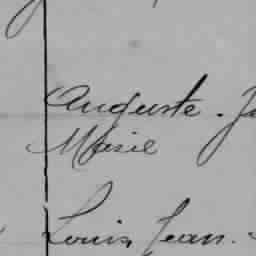 Auguste. J
Marie
Louis, Jean.